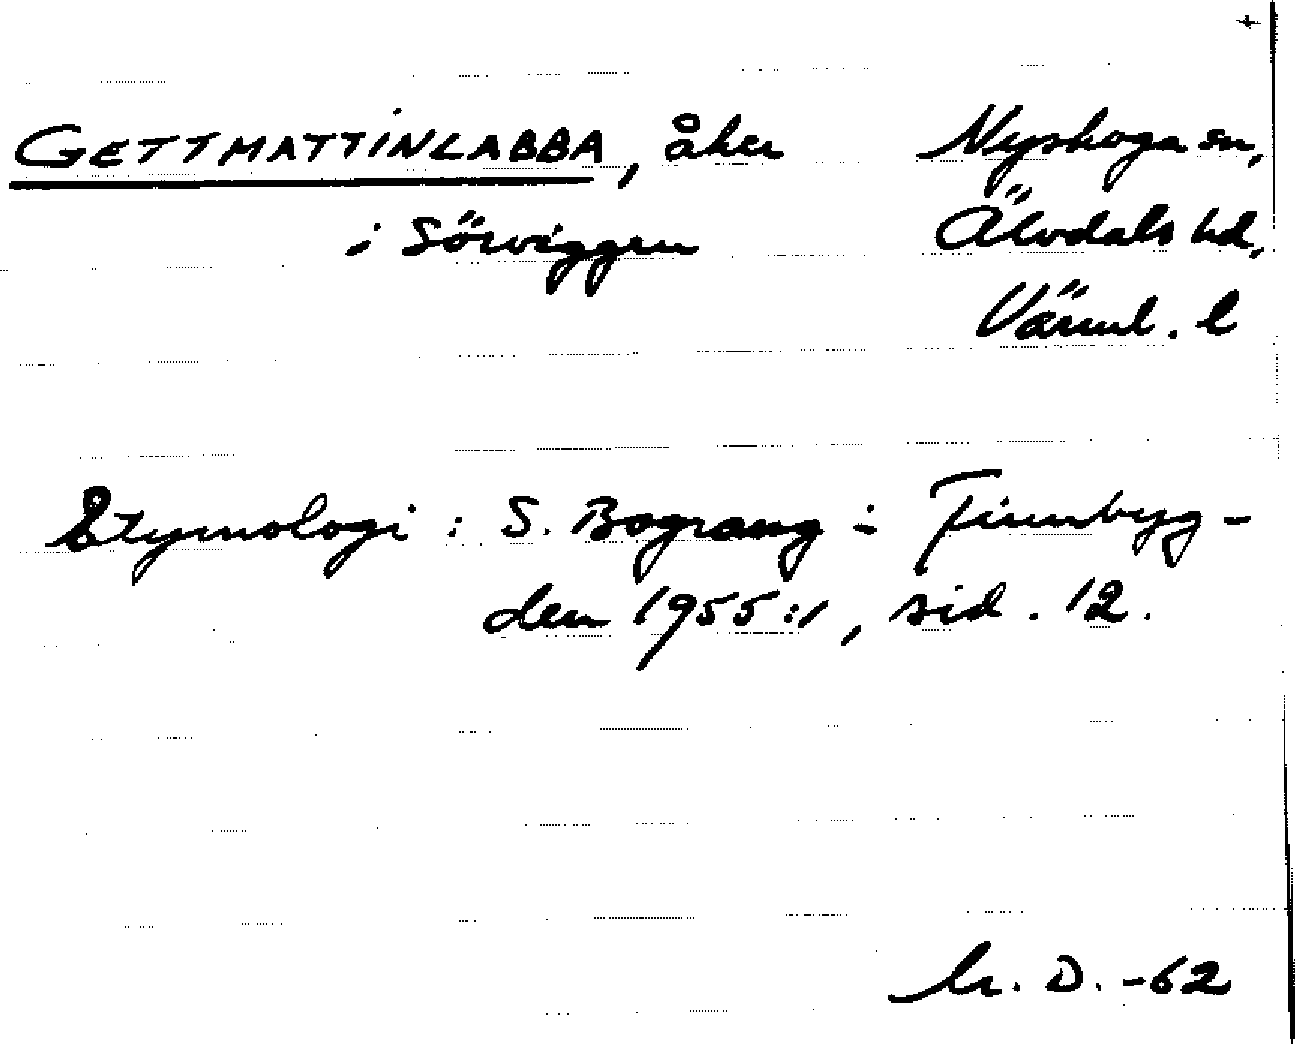 +
GETTMATTINLABBA, åker
i Sörviggen
Nyskoga sn,
Älvdals hd,
Värml. l
Etymologi : S. Bograng i Finnbyg-
den 1955:1, sid. 12.
D. -62